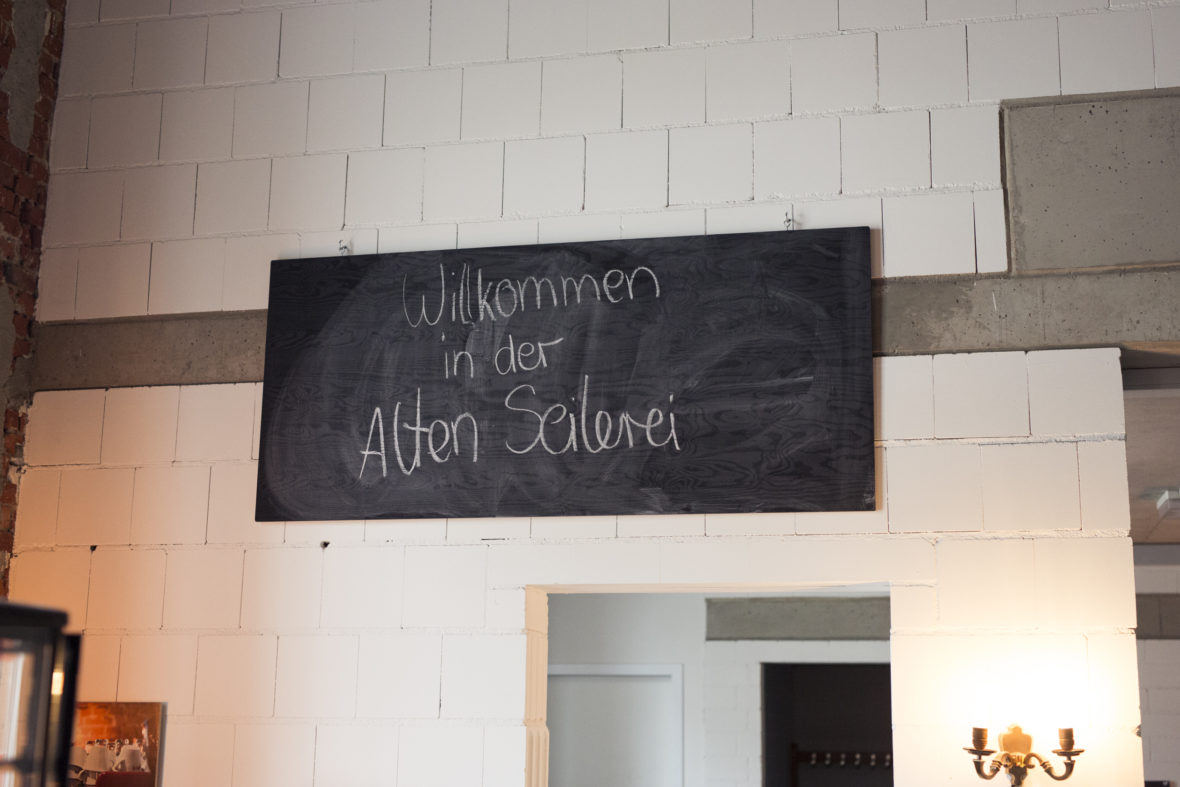 Willkommen
in der
Alten Seilerei